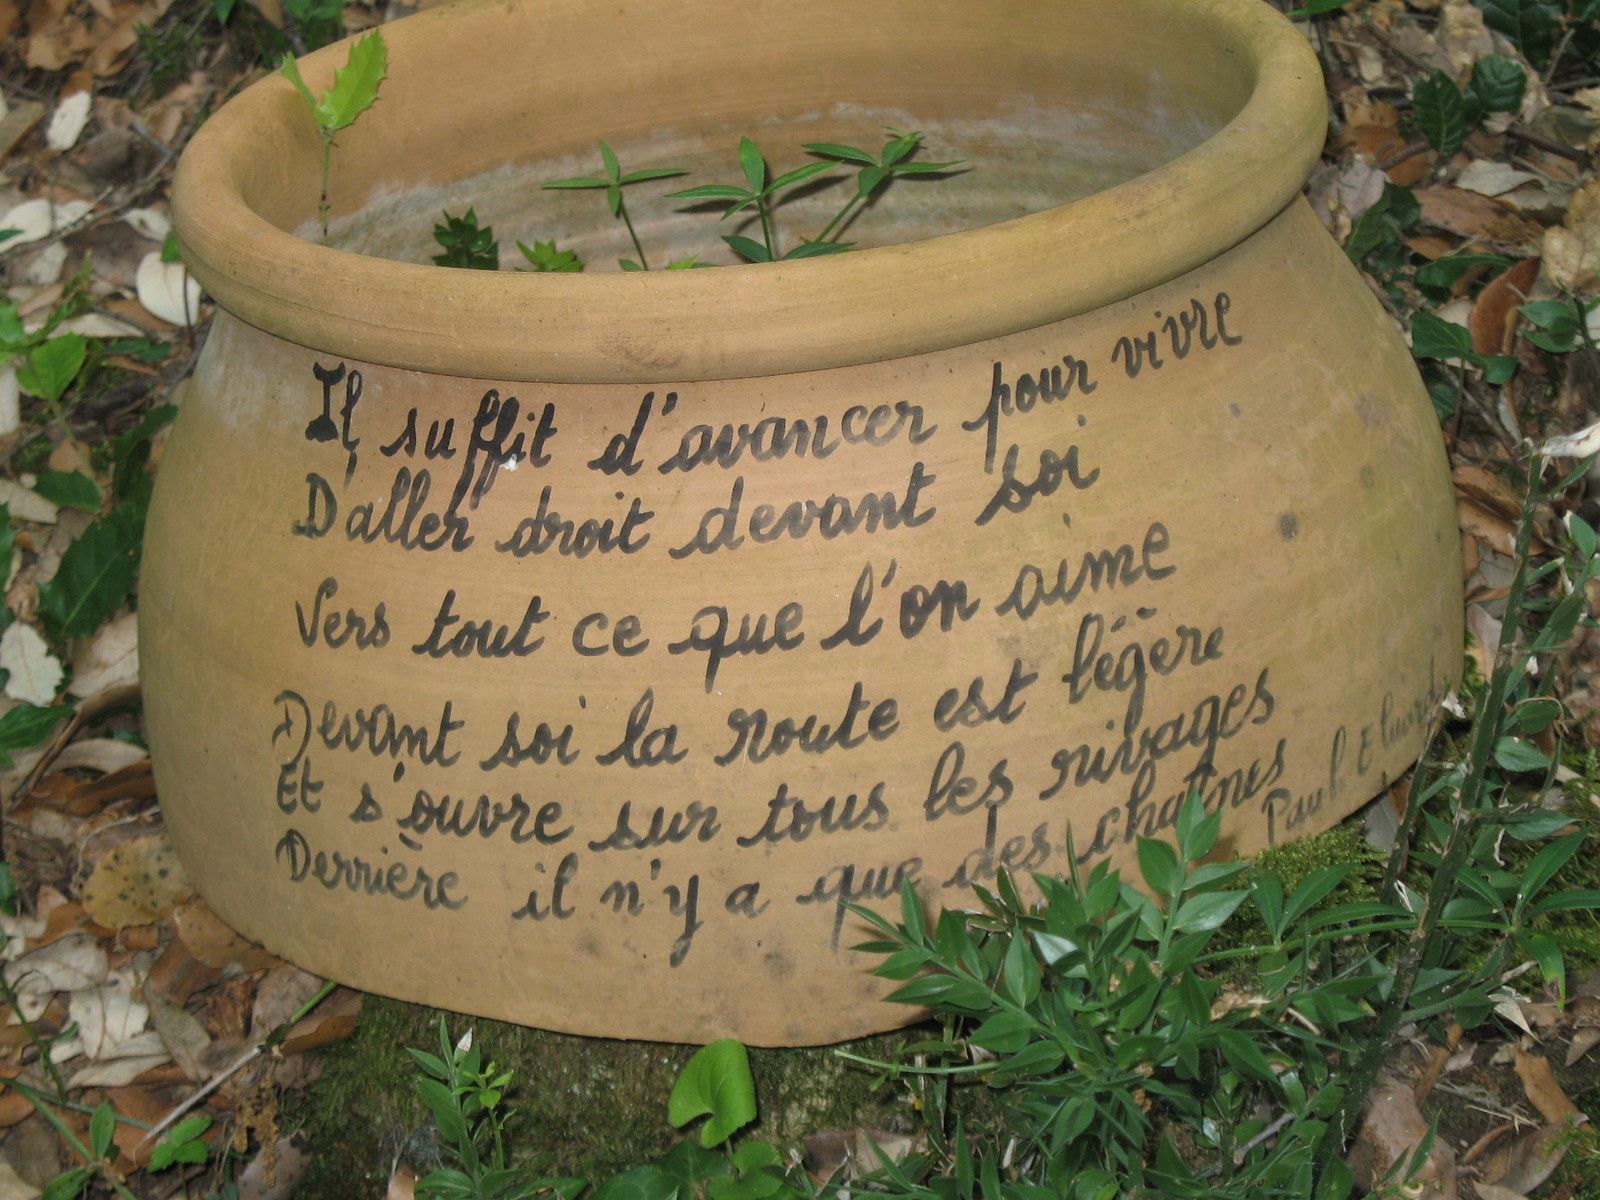 Il suffit d'avancer pour vivre
D'aller droit devant soi
Vers tout ce que l'on aime
Devant soi la route est légère
Et s'ouvre sur tous les rivages
Derrière il n'y a que des chaînes
Paul Eluard